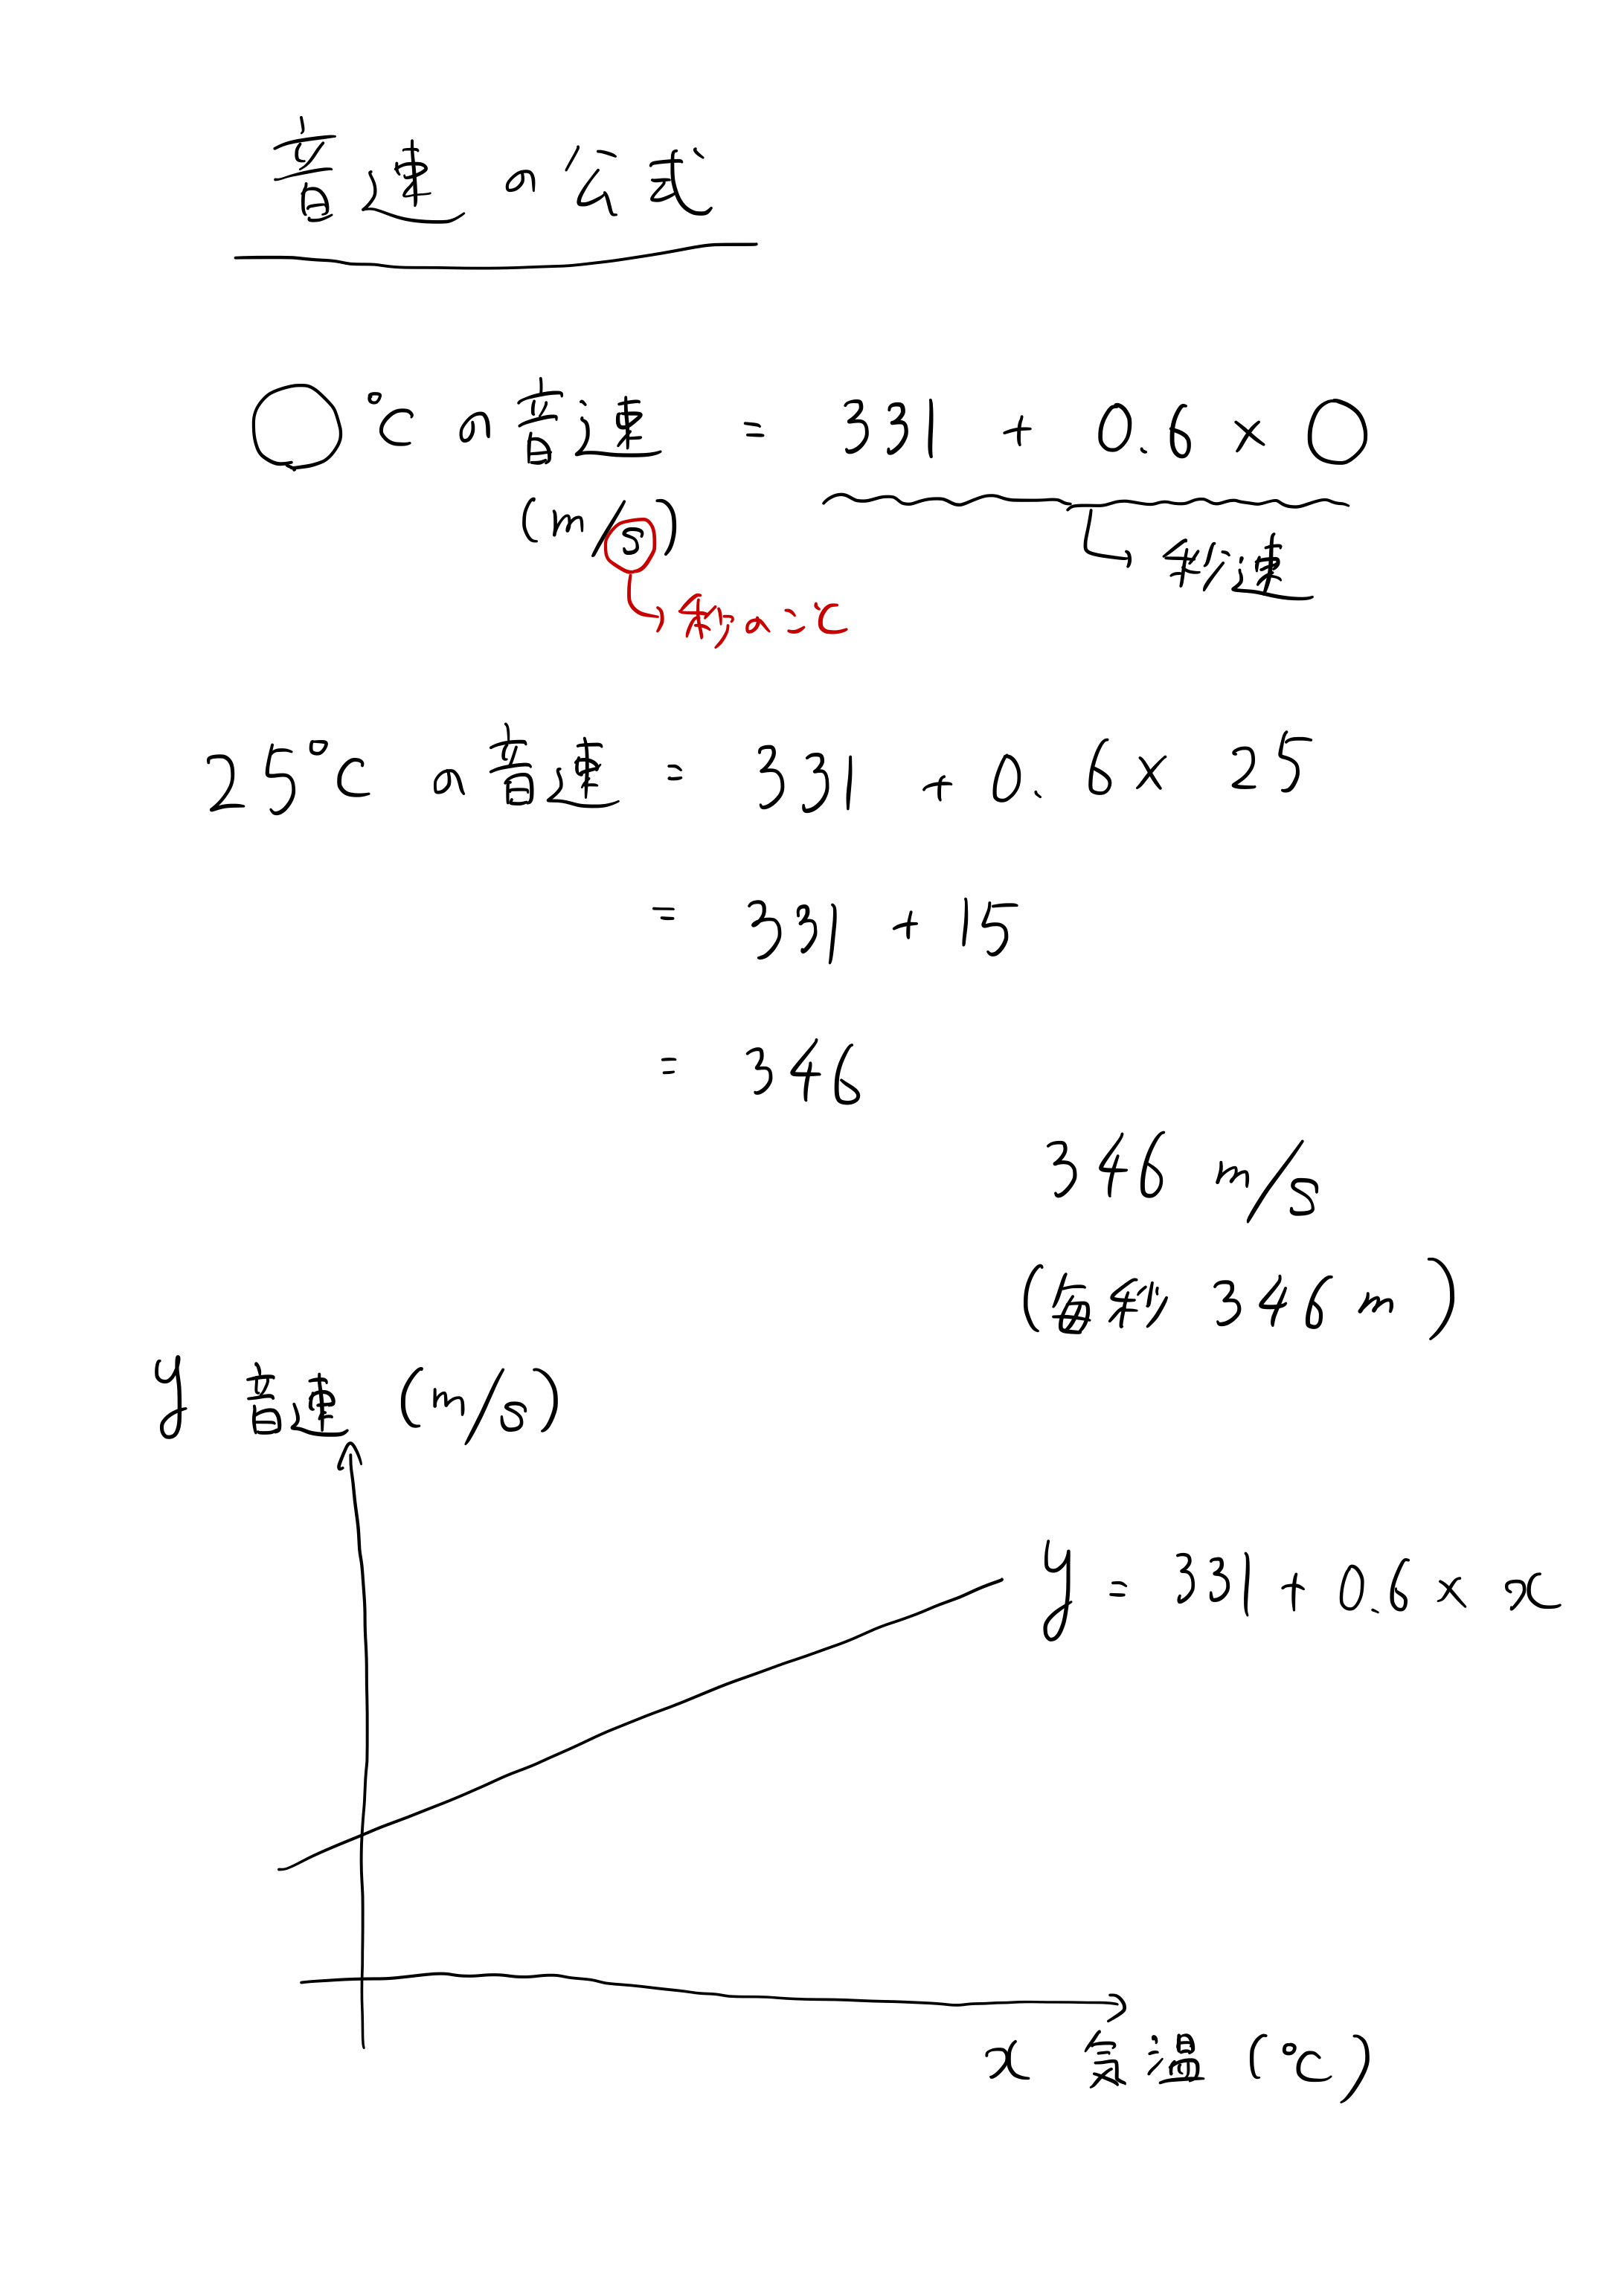 音速の公式
○℃の音速 = 331 + 0.6 × ○
(m/s)
秒速
秒のこと
25℃の音速 = 331 + 0.6 × 25
= 331 + 15
= 346
346 m/s
(毎秒 346 m)
y 音速 (m/s)
y = 331 + 0.6 × x
x 気温 (℃)